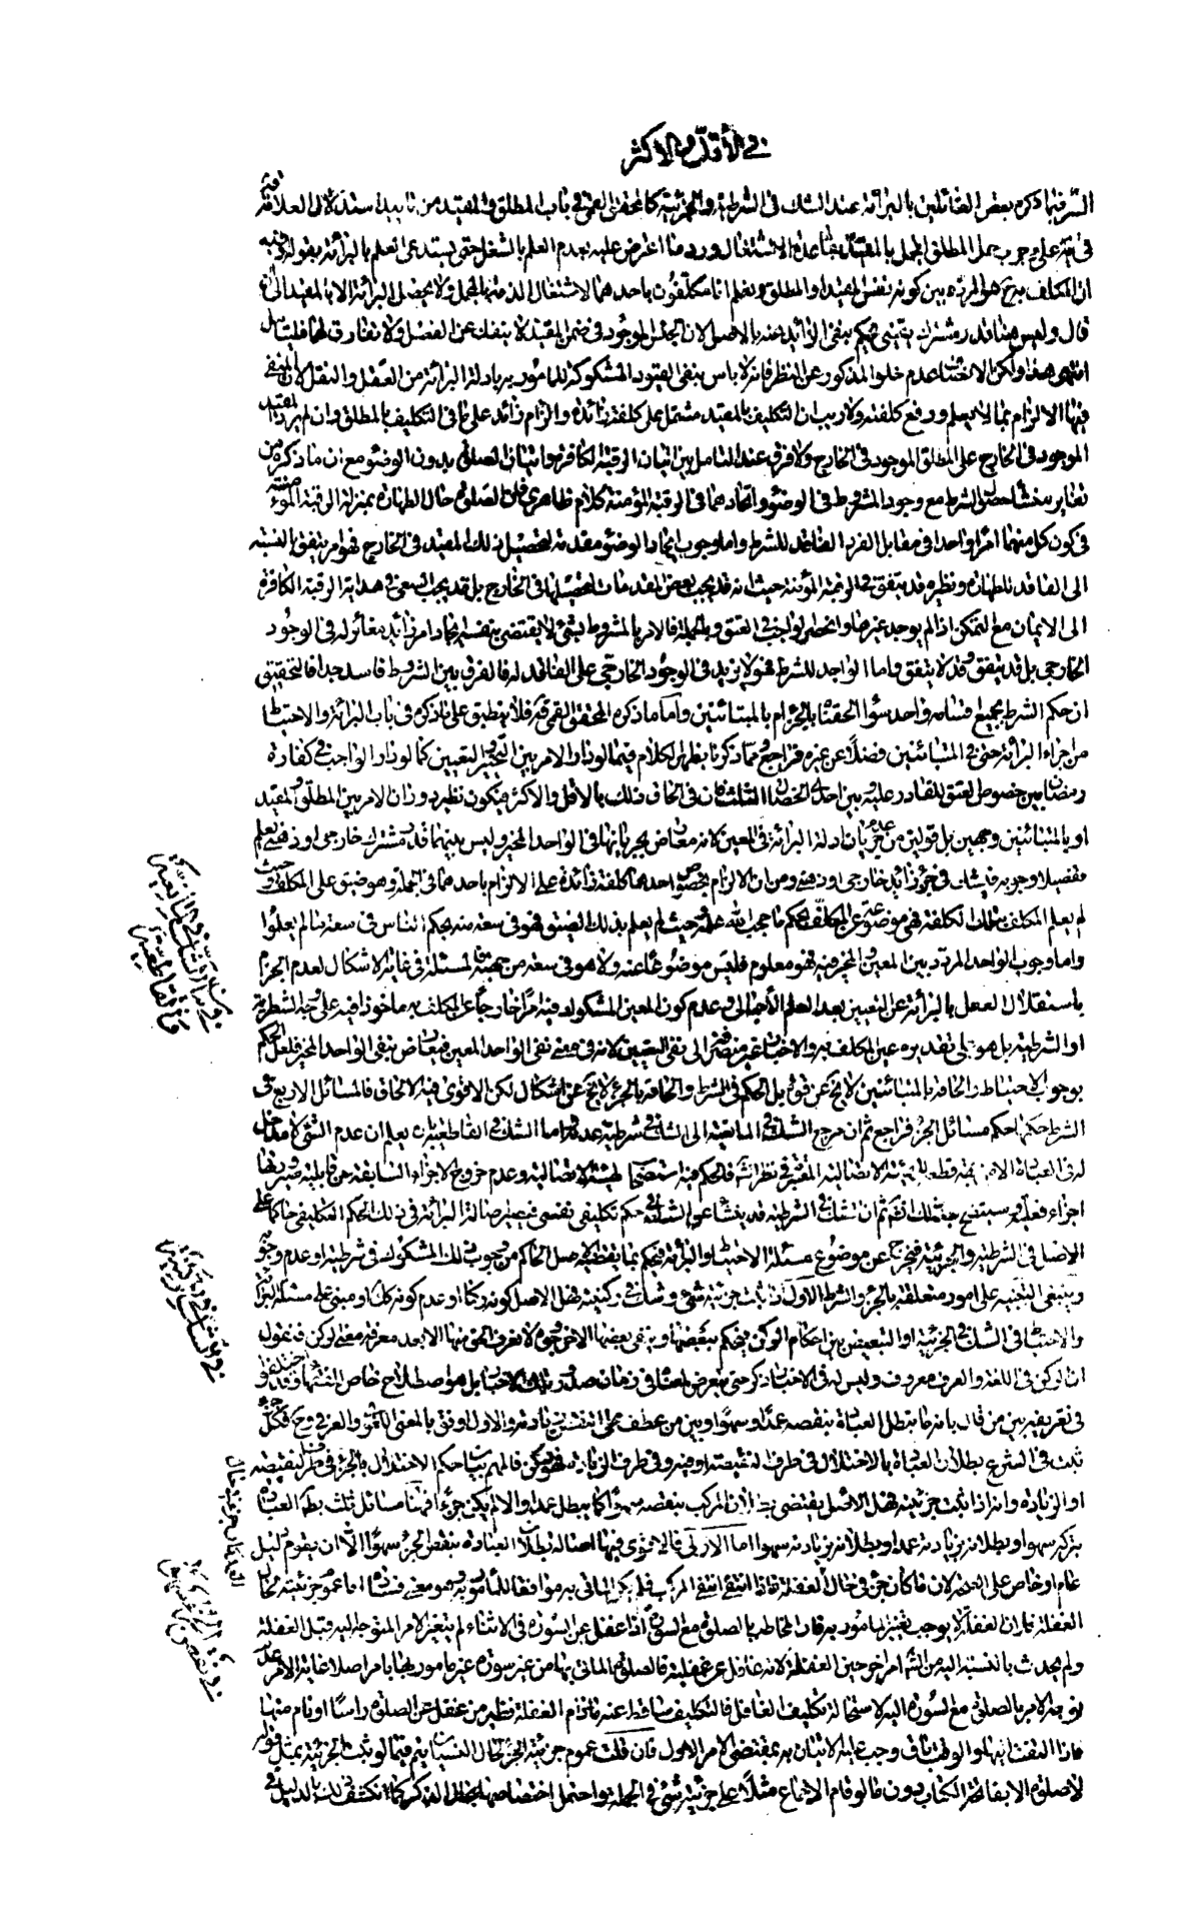 في الأقلّ والاكثر
السّر فيما ذكره بعض القائلين بالبرائة عند الشك في الشرطية والجزئية كالمحقق القمي في باب المطلق والمقيد من تاييد استدلال العلامة ره
في ية على وجوب حمل المطلق على المقيد بقاعدة الاشتغال ورد ما اعترض عليه بعدم العلم بالشغل حتى يستدعى العلم بالبرائة بقوله وفيه
ان المكلف به ح هو المردد بين كونه نفس المقيد او المطلق ونعلم انا مكلفون باحدهما لاشتغال الذمة بالمجمل ولا يحصل البرائة الا بالمقيد الى ان
قال وليس هنا قدر مشترك يقيني يحكم بنفى الزائد عنه بالاصل لان الجنس الموجود في ضمن المقيد لا ينفك عن الفصل ولا تفارق لهما فليتامل
انتهى هذا ولكن الانصاف عدم خلو المذكور عن النظر فانه لا باس بنفى القيود المشكوكة للمامور به بادلة البرائة من العقل والنقل لان المنفى
فيها الالزام بما لا يعلم ورفع كلفته ولا ريب ان التكليف بالمقيد مشتمل على كلفة زائدة والزام زائد على ما في التكليف بالمطلق وان لم يزد المقيد
الموجود في الخارج على المطلق الموجود في الخارج ولا فرق عند التامل بين اتيان الرقبة الكافرة واتيان الصلوة بدون الوضوء مع ان ما ذكره من
تغاير منشا حصول الشرط مع وجود المشروط في الوضوء واتحادهما في الرقبة المؤمنة كلام ظاهري فان الصلوة حال الطهارة بمنزلة الرقبة المؤمنة
في كون كل منهما امرا واحدا في مقابل الفرد الفاقد للشرط واما وجوب ايجاد الوضوء مقدمة لتحصيل ذلك المقيد في الخارج فهو امر يتفق بالنسبة
الى الفاقد للطهارة ونظيره قد يتفق في الرقبة المؤمنة حيث انه قد يجب بعض المقدمات لتحصيلها في الخارج بل قد يجب السعى في هداية الرقبة الكافرة
الى الايمان مع التمكن اذا لم يوجد غيرها وانحصر الواجب في العتق وبالجملة فالامر بالمشروط بشئ لا يقتضى بنفسه ايجاد امر زائد مغائر له في الوجود
الخارجى بل قد يتفق وقد لا يتفق واما الواجد للشرط فهو لا يزيد في الوجود الخارجي على الفاقد له فالفرق بين الشروط فاسد جدا فالتحقيق
ان حكم الشرط بجميع اقسامه واحد سواء الحقناه بالجزء ام بالمتبائنين وأما ما ذكره المحقق القمي ره فلا ينطبق على ما ذكره في باب البرائة والاحتياط
من اجراء البرائة حتى في المتبائنين فضلا عن غيره فراجع ومما ذكرنا يظهر الكلام فيما لو دار الامر بين التخيير والتعيين كما لو دار الواجب في كفارة
رمضان بين خصوص العتق للقادر عليه وبين احدى الخصال الثلث فان في الحاق ذلك بالاقل والاكثر فيكون نظير دوران الامر بين المطلق والمقيد
او بالمتبائنين وجهين بل قولين من عدم جريان ادلة البرائة في المعين لانه معارض بجريانها في الواحد المخير وليس بينهما قدر مشترك خارجى او ذهني يعلم
تفصيلا وجوبه فيشك في جزء زائد خارجي او ذهني ومن ان الالزام بخصوص احدهما كلفة زائدة على الالزام باحدهما في الجملة وهو ضيق على المكلف وحيث
لم يعلم المكلف بتلك الكلفة فهي موضوعة عن المكلف بحكم ما حجب الله علمه وحيث لم يعلم بذلك الضيق فهو في سعة منه بحكم الناس في سعة ما لم يعلموا
واما وجوب الواحد المردد بين المعين والمخير فيه فهو معلوم فليس موضوعا عنه ولا هو في سعة من جهته فالمسئلة في غاية الاشكال لعدم الجزم
باستقلال العقل بالبرائة عن التعيين بعد العلم الأجمالى وعدم كون المعين المشكوك فيه امرا خارجا عن المكلف به ماخوذا فيه على وجه الشطرية
او الشرطية بل هو على تقديره عين المكلف به والاخبار غير منصرفة الى نفى التعيين لانه في معنى نفى الواحد المعين فيعارض بنفى الواحد المخير فلعل الحكم
بوجوب الاحتياط والحاقه بالمتبائنين لا يخ عن قوة بل الحكم في الشرط والحاقه بالجزء لا يخ عن اشكال لكن الاقوى فيه الالحاق فالمسائل الاربع في
الشرط حكمها حكم مسائل الجزء فراجع ثم ان مرجع الشك في المانعية الى الشك في شرطية عدمه واما الشك في القاطعية بان يعلم ان عدم الشئ لا مدخل
له في العبادة الا من جهة قطعه للهيئة الاتصالية المعتبرة في نظر الشارع فالحكم فيه استصحاب الهيئة الاتصالية وعدم خروج الاجزاء السابقة عن قابلية صيرورتها
اجزاء فعلية وسيتضح ذلك انشاء الله ثم ان الشك في الشرطية قد ينشأ عن الشك في حكم تكليفي نفسي فيصير اصالة البرائة في ذلك الحكم التكليفي حاكما على
الاصل في الشرطية والجزئية فيخرج عن موضوع مسئلة الاحتياط والبرائة فيحكم بما يقتضيه الاصل الحاكم من وجوب ذلك المشكوك في شرطيته او عدم وجوبه
وينبغى التنبيه على امور متعلقة بالجزء والشرط الاول اذا ثبت جزئية شئ وشك في ركنيته فهل الاصل كونه ركنا او عدم كونه كك او مبنى على مسئلة البرائة
والاحتياط في الشك في الجزئية او التبعيض بين احكام الركن فيحكم ببعضها وينفى بعضها الاخر وجوه لا يعرف الحق منها الا بعد معرفة معنى الركن فنقول
ان الركن في اللغة والعرف معروف وليس له في الاخبار ذكر حتى يتعرض لمعناه في زمان صدور تلك الاخبار بل هو اصطلاح خاص للفقهاء وقد اختلفوا
في تعريفه بين من قال بانه ما تبطل العبادة بنقصه عمدا وسهوا وبين من عطف على النقص زيادته والاول اوفق بالمعنى اللغوي والعرفي وح فكل جزء
ثبت في الشرع بطلان العبادة بالاختلال في طرف النقيصة او فيه وفي طرف الزيادة فهو ركن فالمهم بيان حكم الاخلال بالجزء في طرف النقيصة
او الزيادة وانه اذا ثبت جزئيته فهل الاصل يقتضى بطلان المركب بنقصه سهوا كما يبطل عمدا والا لم يكن جزء افهنا مسائل ثلث بطلان العبادة
بتركه سهوا وبطلانه بزيادته عمدا وبطلانه بزيادته سهوا اما الاولى فالاقوى فيها اصالة بطلان العبادة بنقص الجزء سهوا الا ان يقوم دليل
عام او خاص على الصحة لان ما كان جزء في حال الغفلة فاذا انتفى انتفى المركب فلم يكن الماتى به موافقا للمأمور به وهو معنى فساده اما عموم جزئيته لحال
الغفلة فلان الغفلة لا يوجب تغيير المامور به فان المخاطب بالصلوة مع السورة اذا غفل عن السورة في الاثناء لم يتغير الامر المتوجه اليه قبل الغفلة
ولم يحدث بالنسبة اليه من الشارع امر اخر حين الغفلة لانه غافل عن غفلته فالصلوة الماتى بها من غير سورة غير مامور بها بامر اصلا غاية الامر عدم
توجه الامر بالصلوة مع السورة اليه لاستحالة تكليف الغافل فالتكليف ساقط عنه ما دام الغفلة نظير من غفل عن الصلوة راسا او نام عنها
فاذا التفت اليها والوقت باق وجب عليه الاتيان به بمقتضى الامر الاول فان قلت عموم جزئية الجزء لحال النسيان يتم فيما لو ثبت الجزئية بمثل قوله
لا صلوة الا بفاتحة الكتاب دون ما لو قام الاجماع مثلا على جزئية شئ في الجملة واحتمل اختصاصها بحال الذكر كما انكشف ذلك بالدليل في